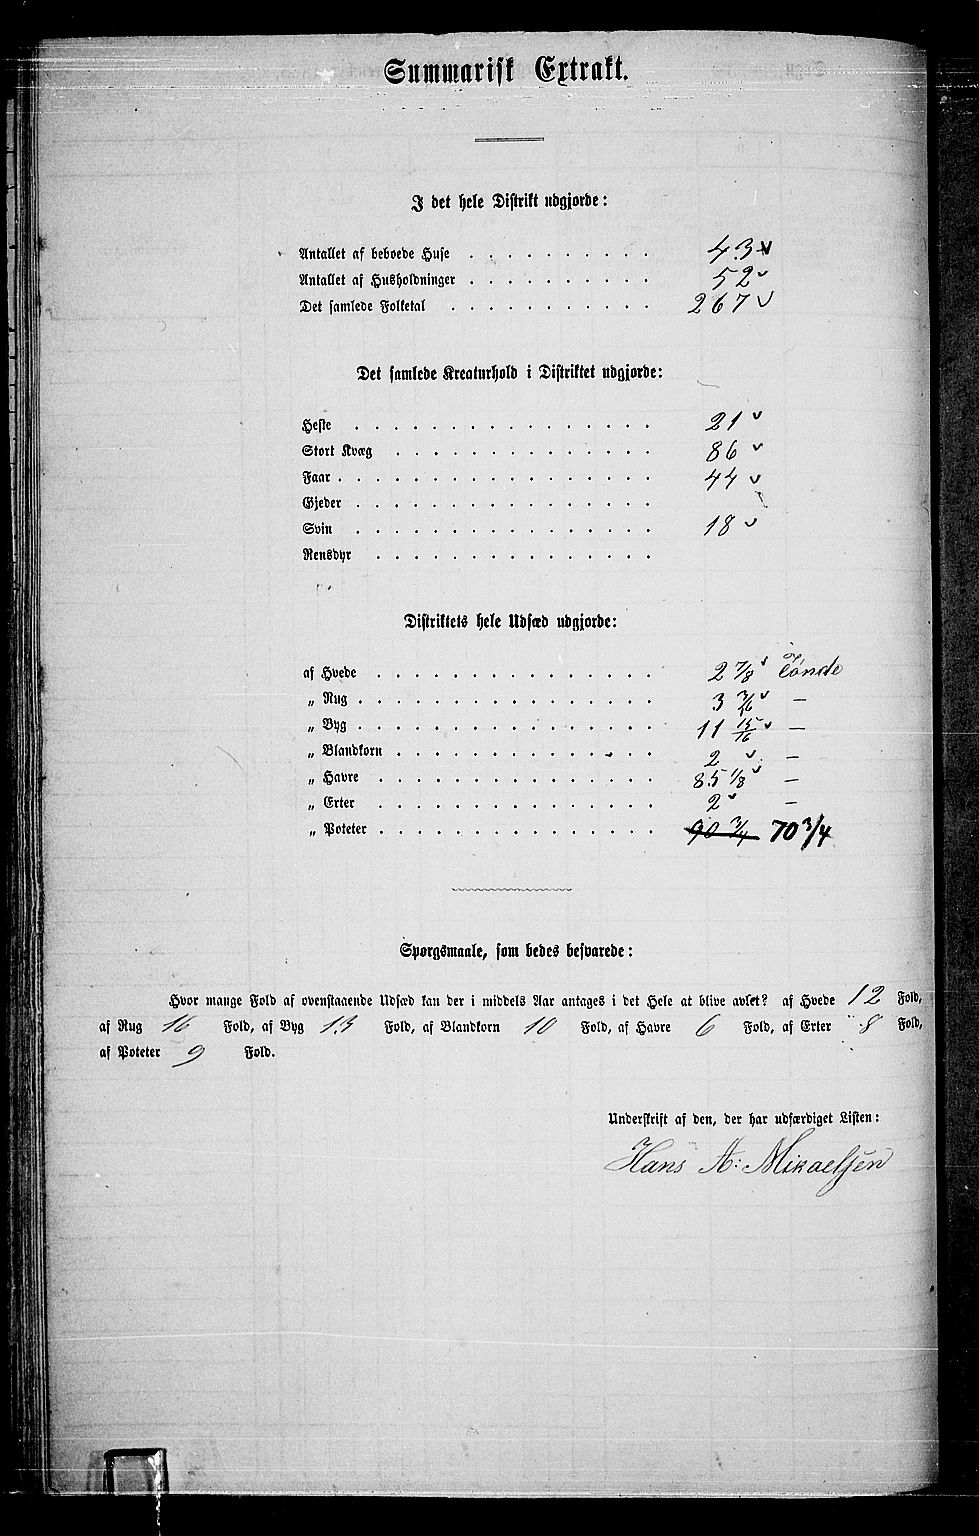 Summarisk Extrakt.
I det hele Distrikt udgjorde:
Antallet af beboede Huse . . . . . . . . . . 43
Antallet af Husholdninger . . . . . . . . . . 52
Det samlede Folketal . . . . . . . . . . . 267
Det samlede Kreaturhold i Distriktet udgjorde:
Heste . . . . . . . . . . . . . . . . 21
Stort Kvæg . . . . . . . . . . . . . . 86
Faar . . . . . . . . . . . . . . . . . 44
Gjeder . . . . . . . . . . . . . . . .
Svin . . . . . . . . . . . . . . . . 18
Rensdyr . . . . . . . . . . . . . . .
Distriktets hele Udsæd udgjorde:
af Hvede . . . . . . . . . . . . . . . 2 7/8 Tönde
„ Rug . . . . . . . . . . . . . . . . 3 3/16 —
„ Byg . . . . . . . . . . . . . . . . 11 15/16 —
„ Blandkorn . . . . . . . . . . . . . . 2 —
„ Havre . . . . . . . . . . . . . . . 85 1/8 —
„ Erter . . . . . . . . . . . . . . . 2 —
„ Poteter . . . . . . . . . . . . . . . 90 3/4 70 3/4
Spørgsmaale, som bedes besvarede:
Hvor mange Fold af ovenstaaende Udsæd kan der i middels Aar antages i det Hele at blive avlet? af Hvede 12 Fold,
af Rug 16 Fold, af Byg 13 Fold, af Blandkorn 10 Fold, af Havre 6 Fold, af Erter 8 Fold,
af Poteter 9 Fold.
Underskrift af den, der har udfærdiget Listen:
Hans A: Mikaelsen